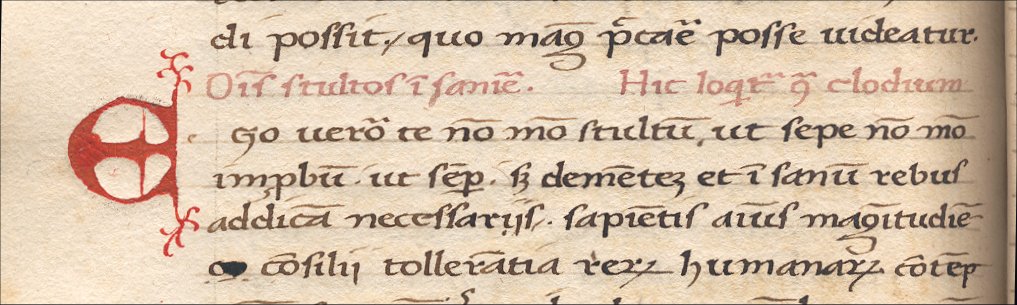 di possit, quo mag̃ p̃cae᷉ posse uideatur.
Oĩs stultos ĩsanir̃e. Hic loq̃t᷉ q̃ clodium
Ego uerõ te nõ mõ stultũ, ut sepe nõ mõ
imꝓbũ. ut sẽꝑ. sꝫ demẽteꝫ et ĩsanũ rebus
addicã necessarijs. sapiẽtis aĩus magĩtudiẽ
cõsilii tollerãtia rerꝝ humanaꝝ cõtẽp